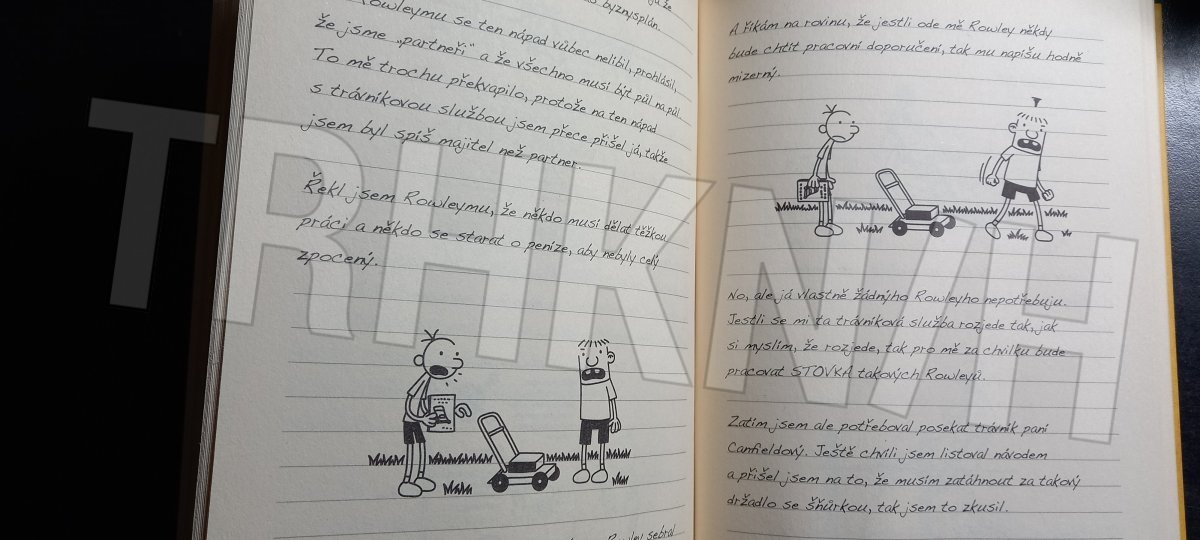 byznysplán.
Rowleymu se ten nápad vůbec nelíbil, prohlásil,
že jsme „partneři“ a že všechno musí být půl na půl.
To mě trochu překvapilo, protože na ten nápad
s trávníkovou službou jsem přece přišel já, takže
jsem byl spíš majitel než partner.
Řekl jsem Rowleymu, že někdo musí dělat těžkou
práci a někdo se starat o peníze, aby nebyly celý
zpocený.
Rowley sebral
A říkám na rovinu, že jestli ode mě Rowley někdy
bude chtít pracovní doporučení, tak mu napíšu hodně
mizerný.
No, ale já vlastně žádnýho Rowleyho nepotřebuju.
Jestli se mi ta trávníková služba rozjede tak, jak
si myslím, že rozjede, tak pro mě za chvilku bude
pracovat STOVKA takových Rowleyů.
Zatím jsem ale potřeboval posekat trávník paní
Canfieldový. Ještě chvíli jsem listoval návodem
a přišel jsem na to, že musím zatáhnout za takový
držadlo se šňůrkou, tak jsem to zkusil.
TRHKNVH